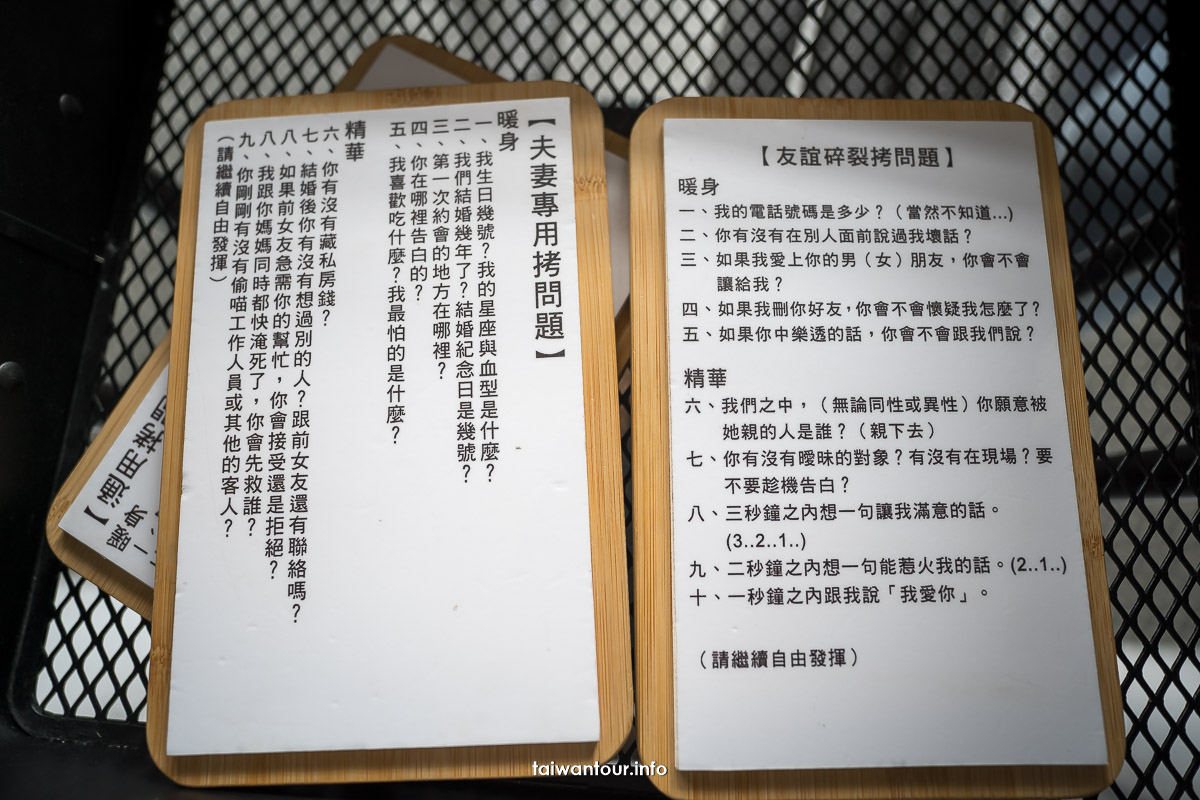 【夫妻專用拷問題】
暖身
一、我生日幾號？我的星座與血型是什麼？
二、我們結婚幾年了？結婚紀念日是幾號？
三、第一次約會的地方在哪裡？
四、你在哪裡告白的？
五、我喜歡吃什麼？我最怕的是什麼？
精華
六、你有沒有藏私房錢？
七、結婚後你有沒有想過別的人？跟前女友還有聯絡嗎？
八、如果前女友急需你的幫忙，你會接受還是拒絕？
八、我跟你媽媽同時都快淹死了，你會先救誰？
九、你剛剛有沒有偷喵工作人員或其他的客人？
（請繼續自由發揮）
【友誼碎裂拷問題】
暖身
一、我的電話號碼是多少？（當然不知道...)
二、你有沒有在別人面前說過我壞話？
三、如果我愛上你的男（女）朋友，你會不會
讓給我？
四、如果我刪你好友，你會不會懷疑我怎麼了？
五、如果你中樂透的話，你會不會跟我們說？
精華
六、我們之中，（無論同性或異性）你願意被
她親的人是誰？（親下去）
七、你有沒有曖昧的對象？有沒有在現場？要
不要趁機告白？
八、三秒鐘之內想一句讓我滿意的話。
(3..2..1..)
九、二秒鐘之內想一句能惹火我的話。(2..1..)
十、一秒鐘之內跟我說「我愛你」。
（請繼續自由發揮）
通用拷問
暖身
一、
taiwantour.info